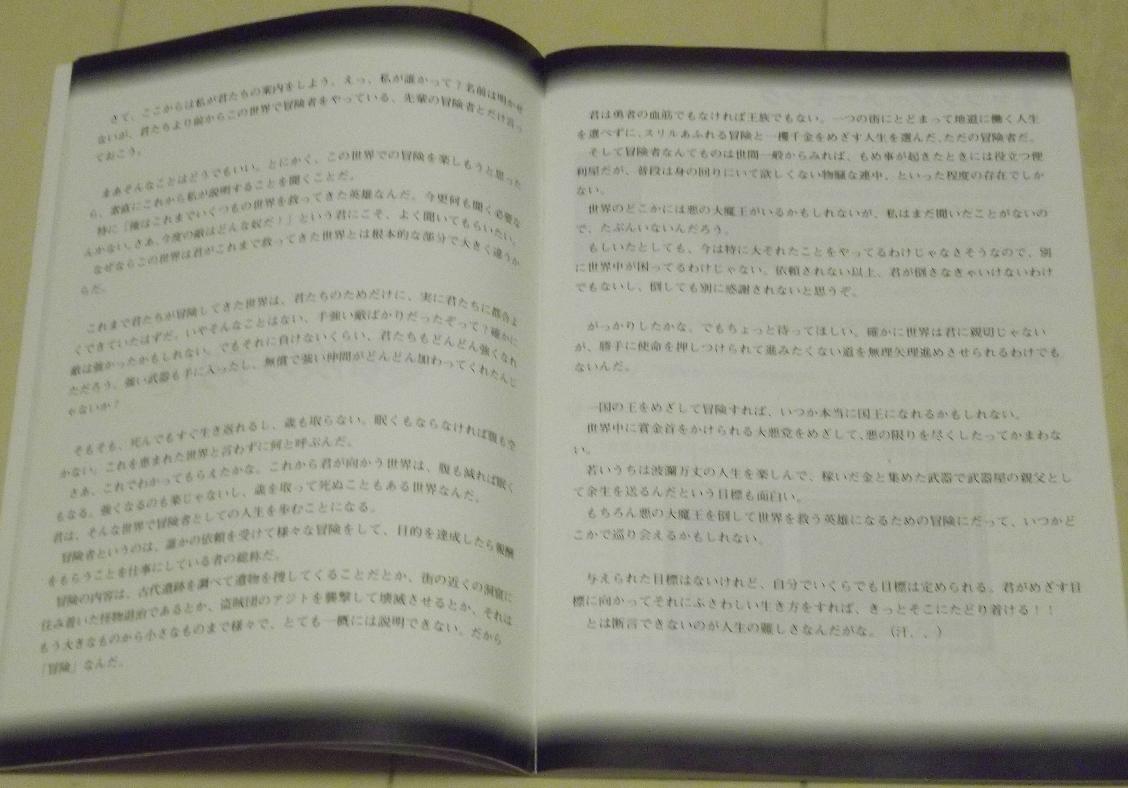 さて、ここからは私が君たちの案内をしよう。えっ、私が誰かって?名前は明かせ
ないが、君たちより前からこの世界で冒険者をやっている、先輩の冒険者とだけ言っ
ておこう。
まあそんなことはどうでもいい。とにかく、この世界での冒険を楽しもうと思った
ら、素直にこれから私が説明することを聞くことだ。
特に「俺はこれまでいくつもの世界を救ってきた英雄なんだ。今更何も聞く必要な
んかない。さあ、今度の敵はどんな奴だ!」という君にこそ、よく聞いてもらいたい。
なぜならこの世界は君がこれまで救ってきた世界とは根本的な部分で大きく違うか
らだ。
これまで君たちが冒険してきた世界は、君たちのためだけに、実に君たちに都合よ
くできていたはずだ。いやそんなことはない、手強い敵ばかりだったぞって?確かに
敵は強かったかもしれない。でもそれに負けないくらい、君たちもどんどん強くなれ
ただろう。強い武器も手に入ったし、無償で強い仲間がどんどん加わってくれたんじ
ゃないか?
そもそも、死んでもすぐ生き返れるし、歳も取らない。眠くもならなければ腹も空
かない。これを恵まれた世界と言わずに何と呼ぶんだ。
さあ、これでわかってもらえたかな。これから君が向かう世界は、腹も減れば眠く
もなる。強くなるのも楽じゃないし、歳を取って死ぬこともある世界なんだ。
君は、そんな世界で冒険者としての人生を歩むことになる。
冒険者というのは、誰かの依頼を受けて様々な冒険をして、目的を達成したら報酬
をもらうことを仕事にしている者の総称だ。
冒険の内容は、古代遺跡を調べて遺物を捜してくることだとか、街の近くの洞窟に
住み着いた怪物退治であるとか、盗賊団のアジトを襲撃して壊滅させるとか、それは
もう大きなものから小さなものまで様々で、とても一概には説明できない。だから
「冒険」なんだ。
君は勇者の血筋でもなければ王族でもない。一つの街にとどまって地道に働く人生
を選べずに、スリルあふれる冒険と一攫千金をめざす人生を選んだ、ただの冒険者だ。
そして冒険者なんてものは世間一般からみれば、もめ事が起きたときには役立つ便
利屋だが、普段は身の回りにいて欲しくない物騒な連中、といった程度の存在でしか
ない。
世界のどこかには悪の大魔王がいるかもしれないが、私はまだ聞いたことがないの
で、たぶんいないんだろう。
もしいたとしても、今は特に大それたことをやってるわけじゃなさそうなので、別
に世界中が困ってるわけじゃない。依頼されない以上、君が倒さなきゃいけないわけ
でもないし、倒しても別に感謝されないと思うぞ。
がっかりしたかな。でもちょっと待ってほしい。確かに世界は君に親切じゃない
が、勝手に使命を押しつけられて進みたくない道を無理矢理進めさせられるわけでも
ないんだ。
一国の王をめざして冒険すれば、いつか本当に国王になれるかもしれない。
世界中に賞金首をかけられる大悪党をめざして、悪の限りを尽くしたってかまわな
い。
若いうちは波瀾万丈の人生を楽しんで、稼いだ金と集めた武器で武器屋の親父とし
て余生を送るんだという目標も面白い。
もちろん悪の大魔王を倒して世界を救う英雄になるための冒険にだって、いつかど
こかで巡り会えるかもしれない。
与えられた目標はないけれど、自分でいくらでも目標は定められる。君がめざす目
標に向かってそれにふさわしい生き方をすれば、きっとそこにたどり着ける!!
とは断言できないのが人生の難しさなんだがな。(汗．．)